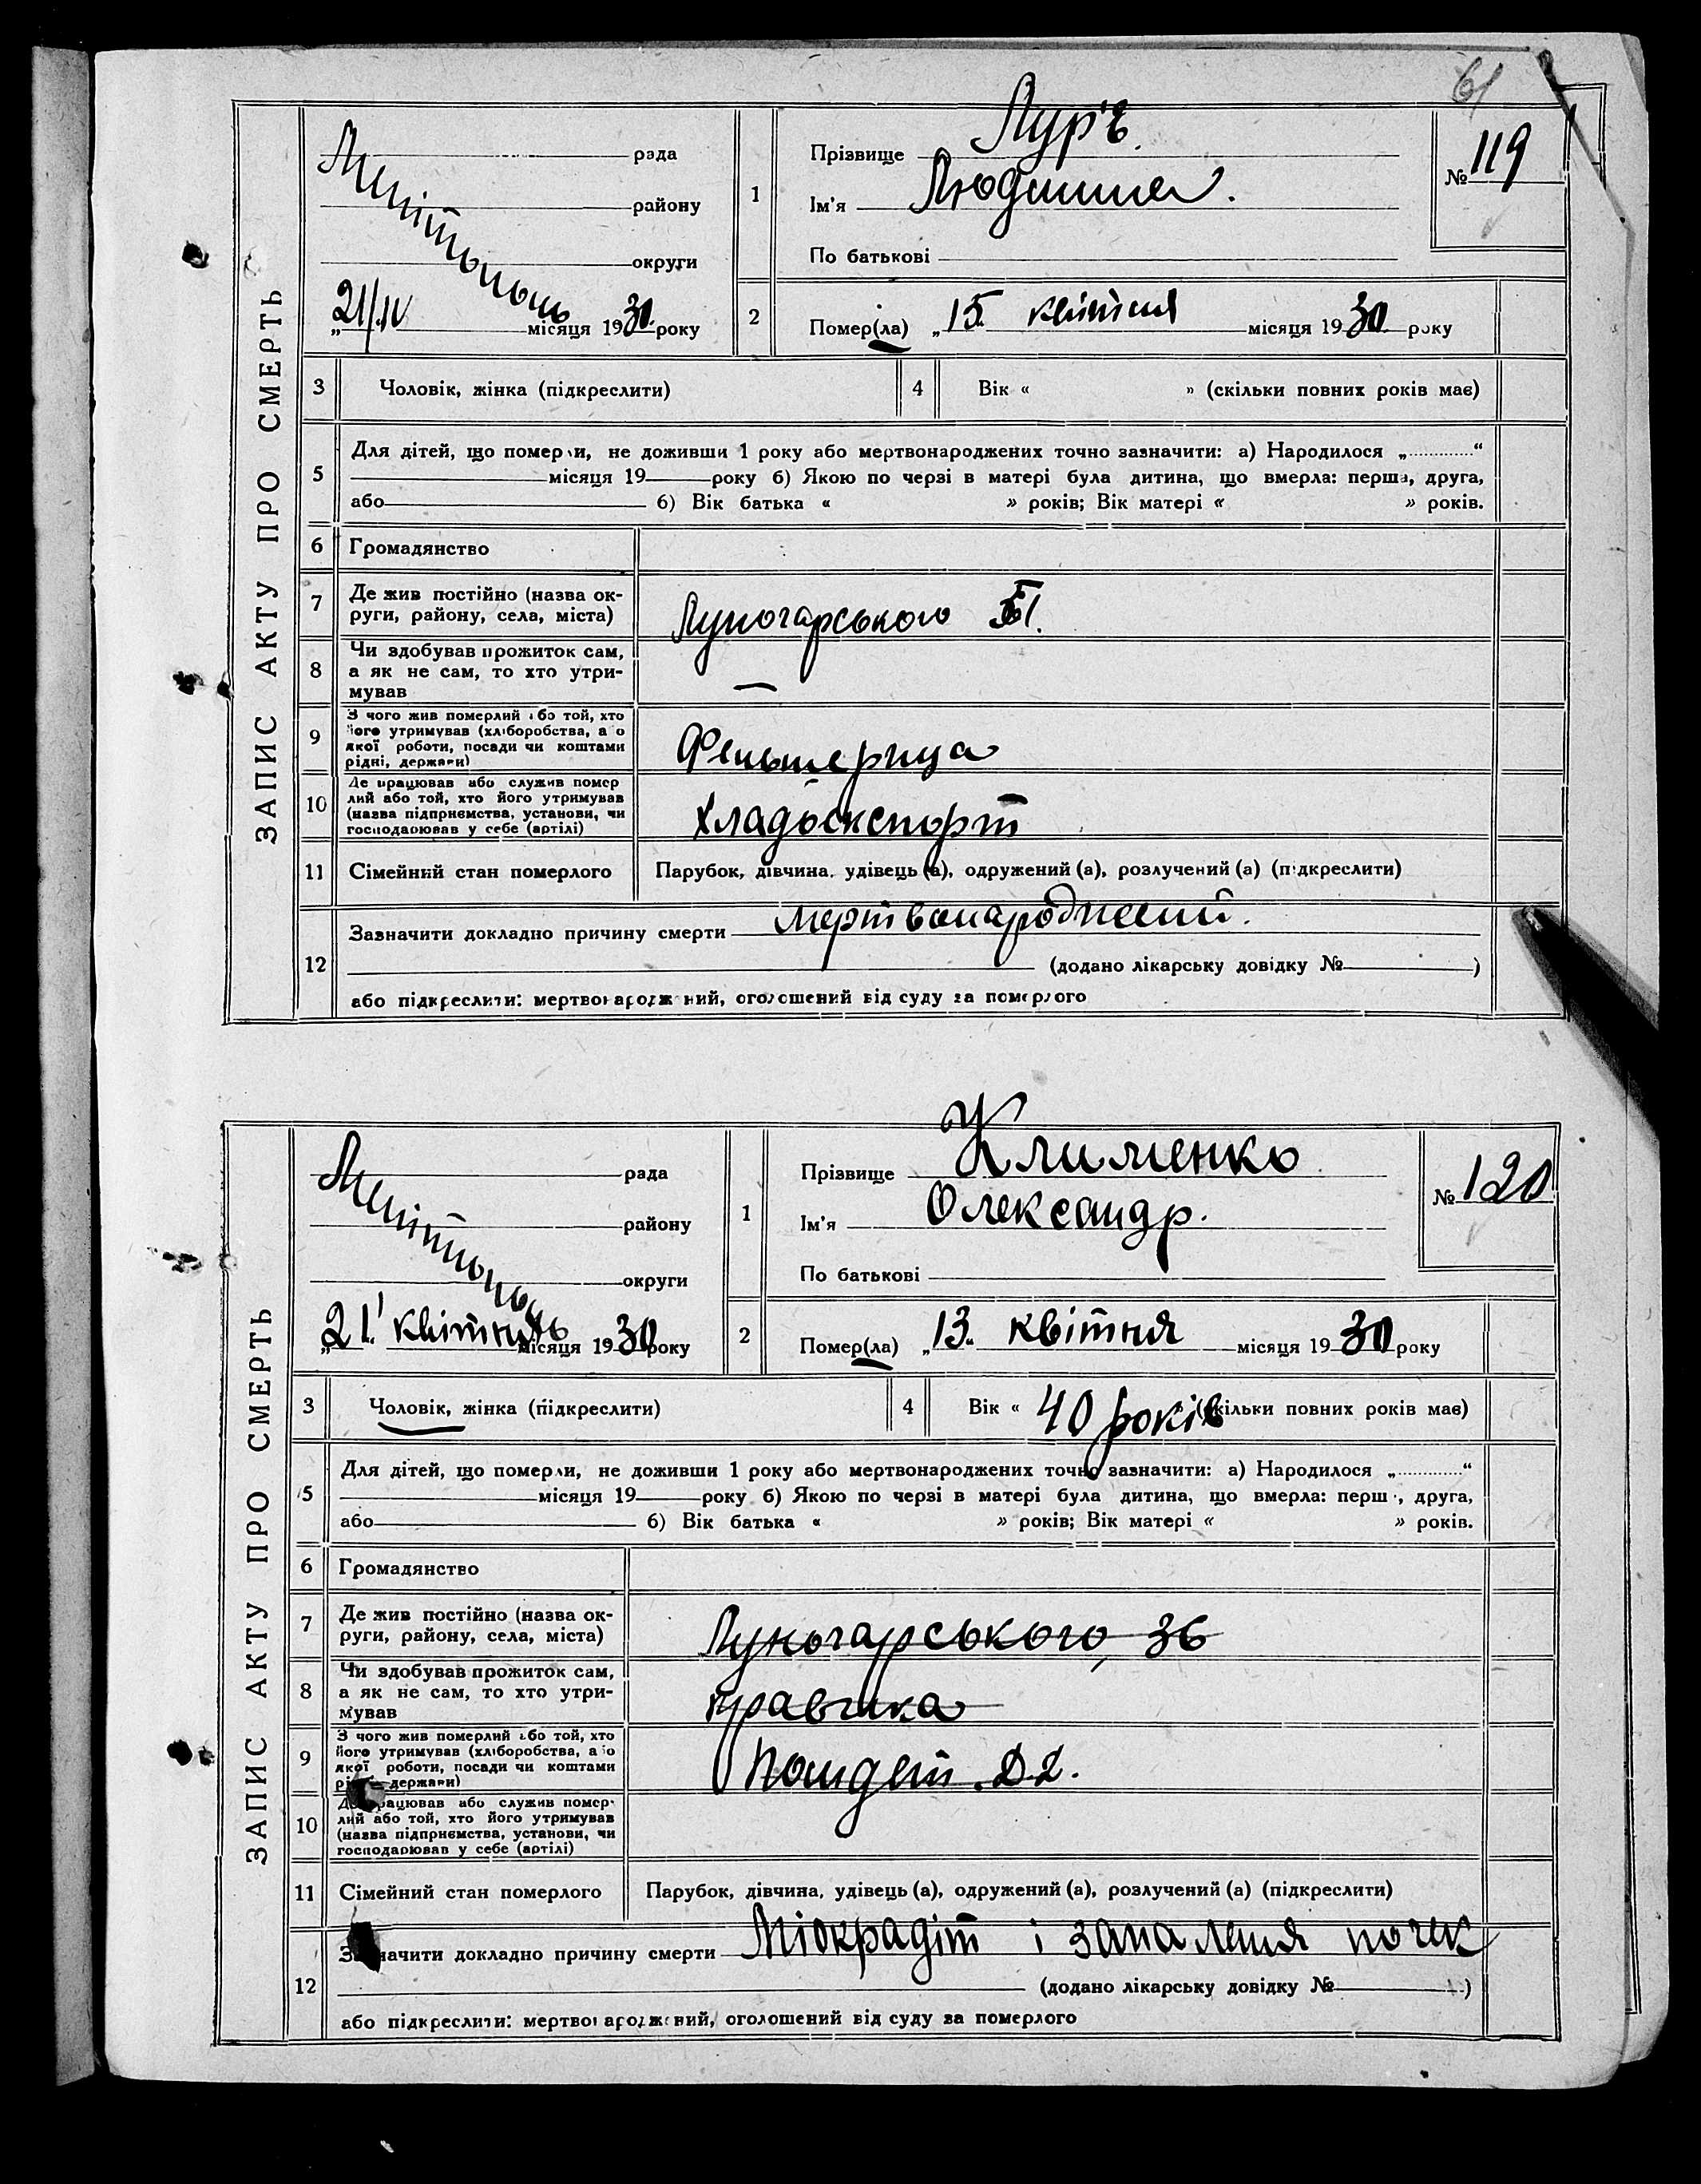 61
ЗАПИС АКТУ ПРО СМЕРТЬ
Мелітополь
рада
району
округи
„21/IV місяця 1930 року
1
Прізвище Лур'є.
Ім'я Людмила.
По батькові
№ 119
2
Помер(ла) „15. квітня місяця 1930 року
3 Чоловік, жінка (підкреслити)
4 Вік « » (скільки повних років має)
5
Для дітей, що померли, не доживши 1 року або мертвонароджених точно зазначити: а) Народилося „............“
місяця 19 року б) Якою по черзі в матері була дитина, що вмерла: перша, друга,
або б) Вік батька « » років; Вік матері « » років.
6 Громадянство
7
Де жив постійно (назва ок-
руги, району, села, міста)
Луночарського
8
Чи здобував прожиток сам,
а як не сам, то хто утри-
мував
—
9
З чого жив померлий або той, хто
його утримував (хліборобства, або
якої роботи, посади чи коштами
рідні, держави)
10
Де працював або служив помер
лий або той, хто його утримував
(назва підприємства, установи, чи
господарював у себе (артілі)
Хладоекспорт
11 Сімейний стан померлого
Парубок, дівчина, удівець (а), одружений (а), розлучений (а) (підкреслити)
12
Зазначити докладно причину смерти мертвонароджений.
(додано лікарську довідку № )
або підкреслити: мертвонароджений, оголошений від суду за померлого
ЗАПИС АКТУ ПРО СМЕРТЬ
Мелітополь
рада
району
округи
„21. квітня місяця 1930 року
1
Прізвище Клименко
Ім'я Олександр.
По батькові
№ 120
2
Помер(ла) „13. квітня місяця 1930 року
3 Чоловік, жінка (підкреслити)
4 Вік « 40 років (скільки повних років має)
5
Для дітей, що померли, не доживши 1 року або мертвонароджених точно зазначити: а) Народилося „............“
місяця 19 року б) Якою по черзі в матері була дитина, що вмерла: перша, друга,
або б) Вік батька « » років; Вік матері « » років.
6 Громадянство
7
Де жив постійно (назва ок-
руги, району, села, міста)
Луночарського, 36
8
Чи здобував прожиток сам,
а як не сам, то хто утри-
мував
9
З чого жив померлий або той, хто
його утримував (хліборобства, або
якої роботи, посади чи коштами
рідні, держави)
10
Де працював або служив помер-
лий або той, хто його утримував
(назва підприємства, установи, чи
господарював у себе (артілі)
11 Сімейний стан померлого
Парубок, дівчина, удівець (а), одружений (а), розлучений (а) (підкреслити)
12
Зазначити докладно причину смерти Міокрадіт і запаления почек
(додано лікарську довідку № )
або підкреслити: мертвонароджений, оголошений від суду за померлого